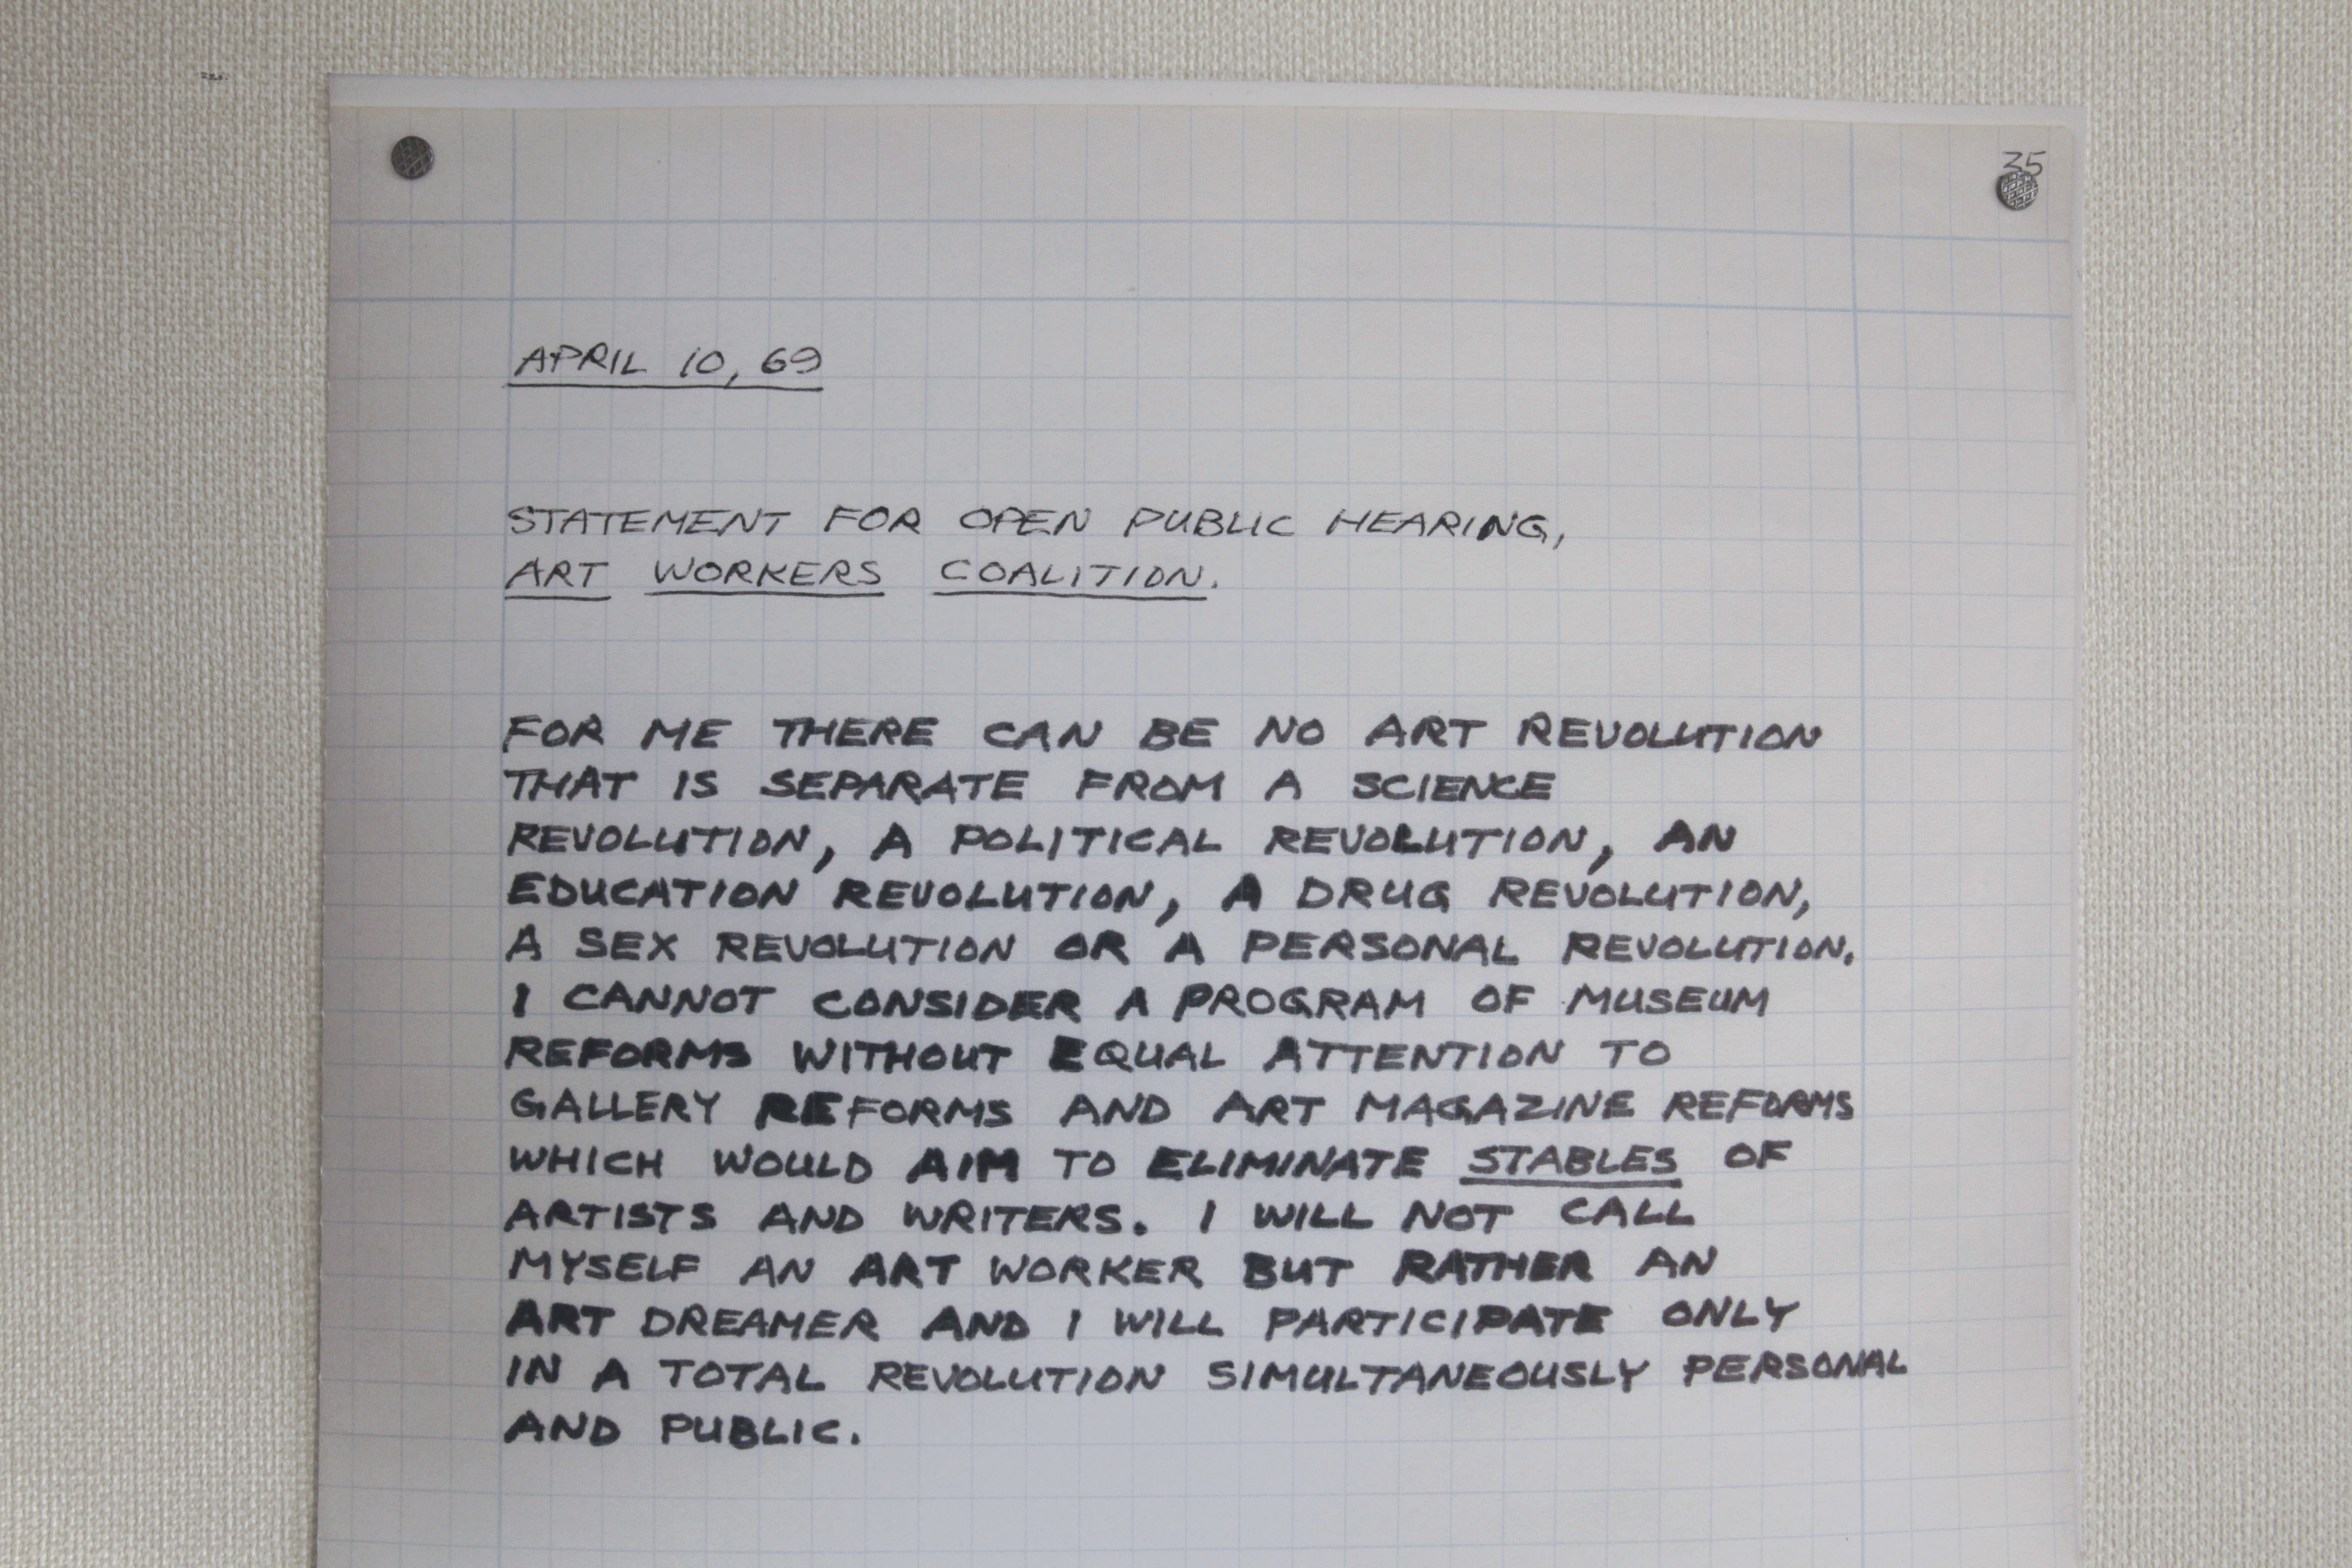 35
APRIL 10, 69
STATEMENT FOR OPEN PUBLIC HEARING,
ART WORKERS COALITION.
FOR ME THERE CAN BE NO ART REVOLUTION
THAT IS SEPARATE FROM A SCIENCE
REVOLUTION, A POLITICAL REVOLUTION, AN
EDUCATION REVOLUTION, A DRUG REVOLUTION,
A SEX REVOLUTION OR A PERSONAL REVOLUTION.
I CANNOT CONSIDER A PROGRAM OF MUSEUM
REFORMS WITHOUT EQUAL ATTENTION TO
GALLERY REFORMS AND ART MAGAZINE REFORMS
WHICH WOULD AIM TO ELIMINATE STABLES OF
ARTISTS AND WRITERS. I WILL NOT CALL
MYSELF AN ART WORKER BUT RATHER AN
ART DREAMER AND I WILL PARTICIPATE ONLY
IN A TOTAL REVOLUTION SIMULTANEOUSLY PERSONAL
AND PUBLIC.